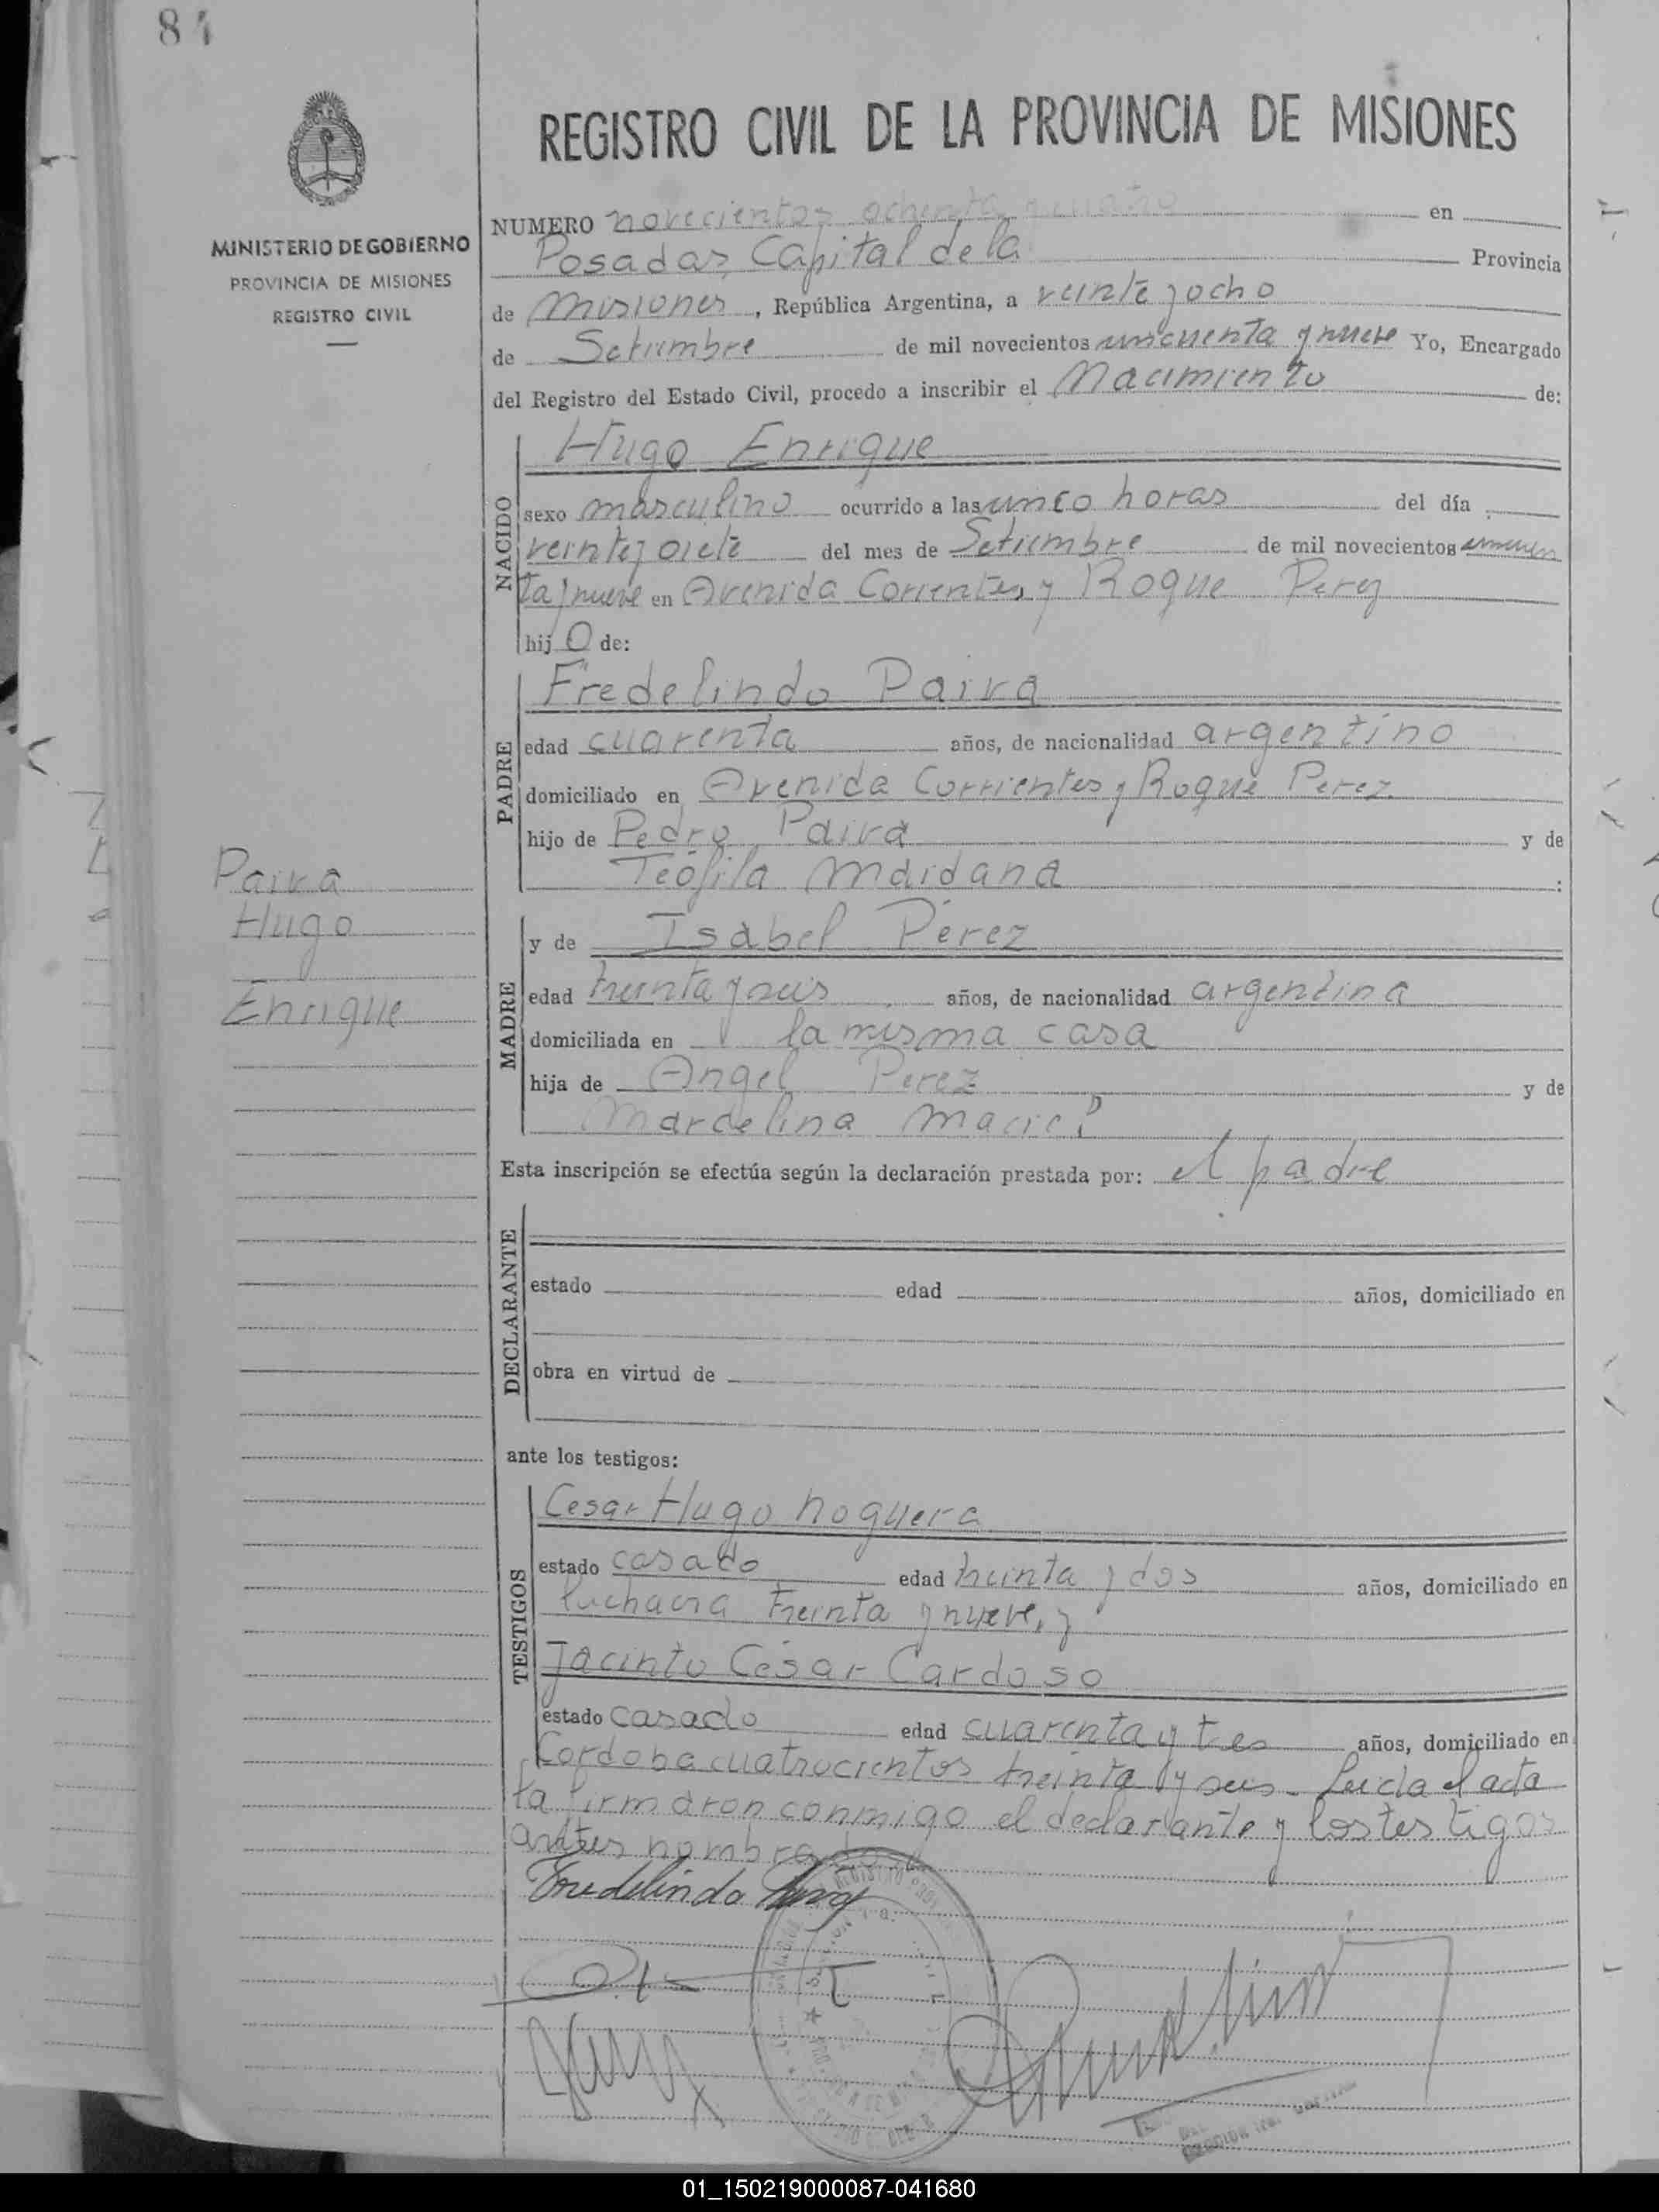 84
REGISTRO CIVIL DE LA PROVINCIA DE MISIONES
MINISTERIO DE GOBIERNO
PROVINCIA DE MISIONES
REGISTRO CIVIL
NUMERO novecientos ochenta en
Posadas, Capital de la Provincia
de Misiones, República Argentina, a veinte y ocho
de Setiembre de mil novecientos cincuenta y nueve Yo, Encargado
del Registro del Estado Civil, procedo a inscribir el Nacimiento de:
NACIDO
Hugo Enrique
sexo masculino ocurrido a las cinco horas del día
veinte y siete del mes de Setiembre de mil novecientos cincuen
ta y nueve en Avenida Corrientes y Roque Perez
hijo de:
PADRE
Fredelindo Paiva
edad cuarenta años, de nacionalidad argentino
domiciliado en Avenida Corrientes y Roque Perez
hijo de Pedro Paiva y de
Teófila Maidana :
Paiva
Hugo
Enrique
MADRE
y de Isabel Perez
edad treinta y seis años, de nacionalidad argentina
domiciliada en la misma casa
hija de Angel Perez y de
Marcelina Maciel
Esta inscripción se efectúa según la declaración prestada por: el padre
DECLARANTE
estado edad años, domiciliado en
obra en virtud de
ante los testigos:
TESTIGOS
Cesar Hugo Noguera
estado casado edad treinta y dos años, domiciliado en
treinta y nueve, y
Jacinto César Cardoso
estado casado edad cuarenta y tres años, domiciliado en
Cordoba cuatrocientos treinta y seis. Leida el acta
la firmaron conmigo el declarante y los testigos
antes nombrados
Fredelindo Paiva
01_150219000087-041680